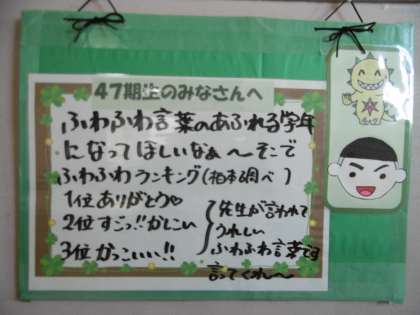 47期生のみなさんへ
ふわふわ言葉のあふれる学年
になってほしいなぁ〜そこで
ふわふわランキング(柏本調べ)
1位 ありがとう♡
2位 すごっ!!かしこい
3位 かっこいい!!
先生が言われて
うれしい
ふわふわ言葉です
言ってくれ〜